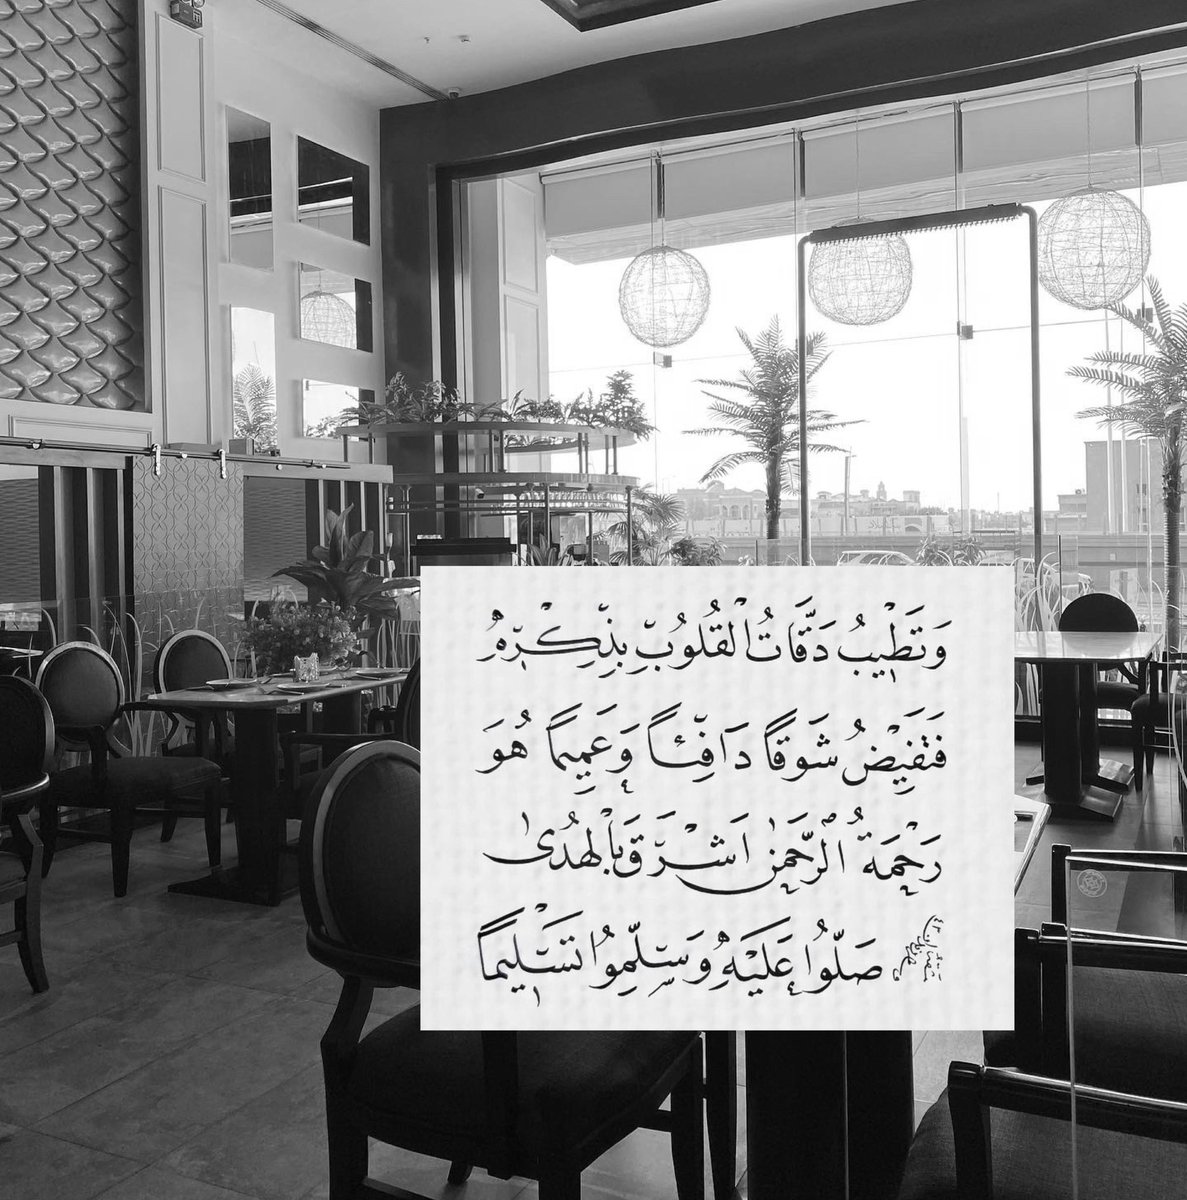 وَتَطِيبُ دَقَّاتُ الْقُلُوبِ بِذِكْرِهِ
فَتَفِيْضُ شَوقًا دَافِئًا وَعَمِيمًا هُوَ
رَحْمَةُ الرَّحْمَنِ اَشْرَقَ بِالْهُدىٰ
صَلُّوا عَلَيْهِ وَسَلِّمُوا تَسْلِيمًا